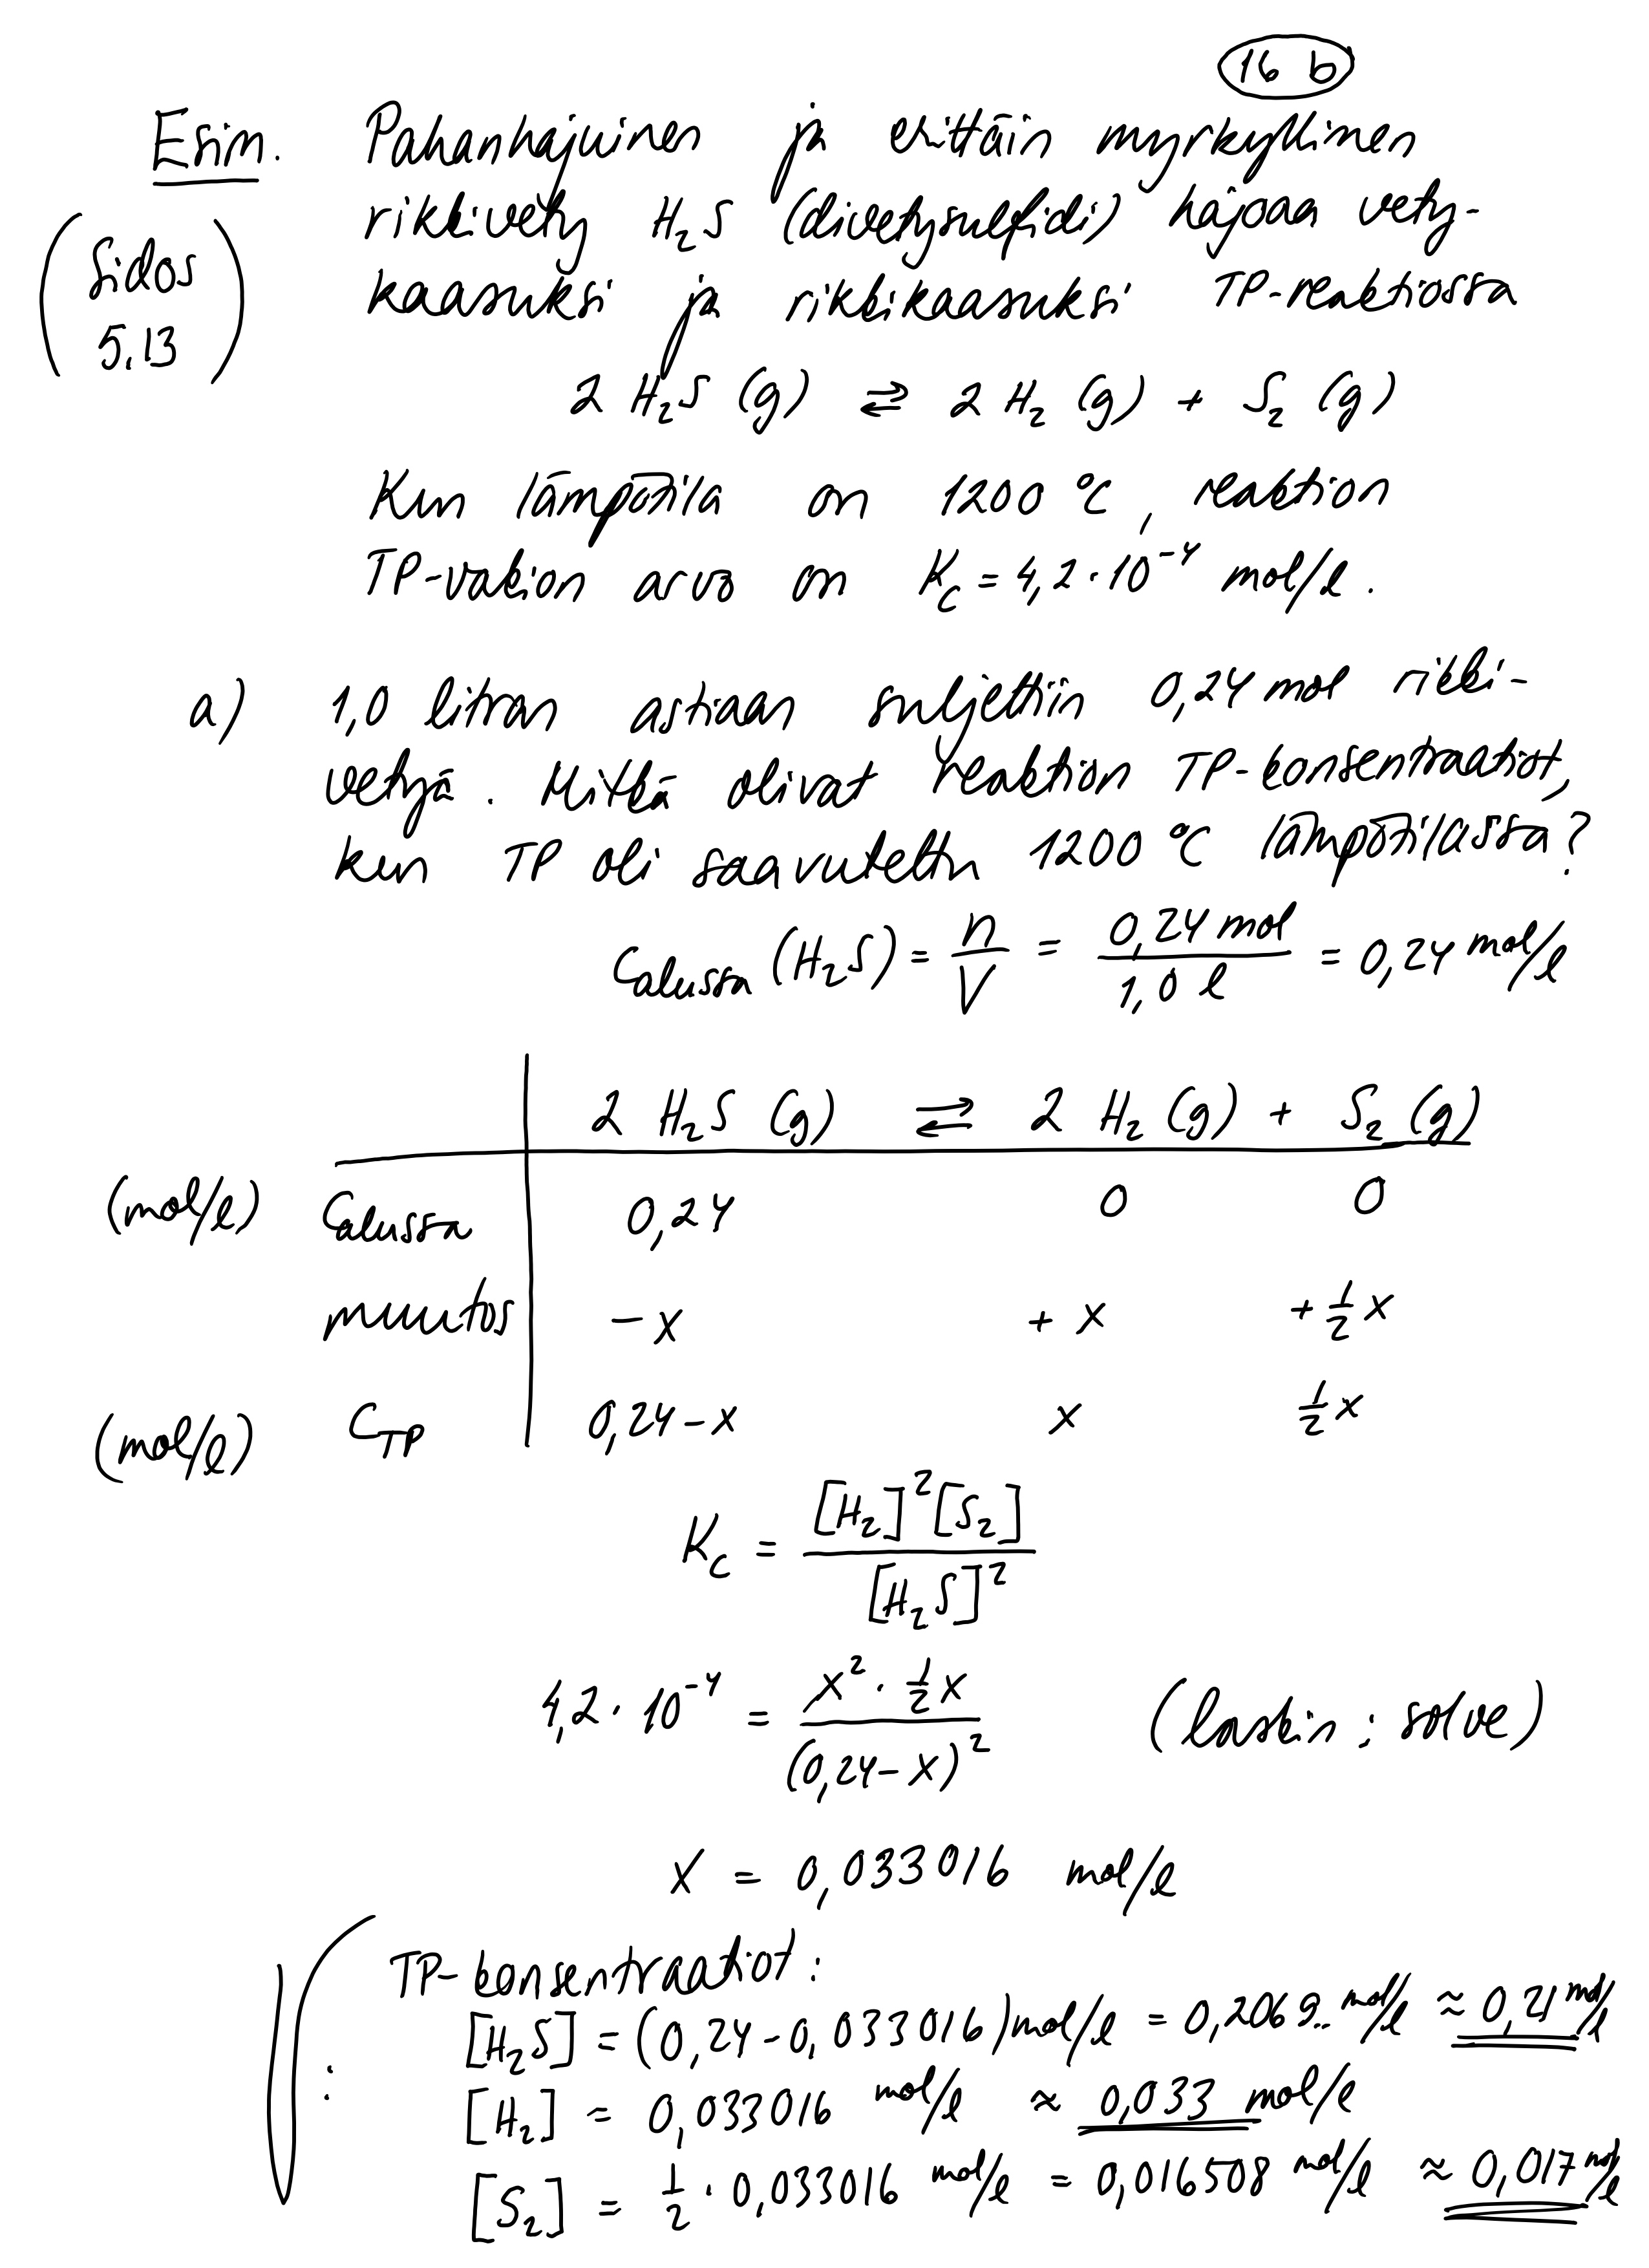 16 b
Esim. Pahanhajuinen ja erittäin myrkyllinen
(Sidos 5.13) rikkivety H₂S (divetysulfidi) hajoaa vety-
kaasuksi ja rikkikaasuksi TP-reaktiossa
2 H₂S (g) ⇄ 2 H₂ (g) + S₂ (g)
Kun lämpötila on 1200 °C, reaktion
TP-vakion arvo on K_c = 4,2·10⁻⁴ mol/l.
a) 1,0 litran astiaan suljettiin 0,24 mol rikki-
vetyä. Mitkä olivat reaktion TP-konsentraatiot,
kun TP oli saavutettu 1200 °C lämpötilassa?
C_alussa (H₂S) = n/V = 0,24 mol / 1,0 l = 0,24 mol/l
2 H₂S (g) ⇄ 2 H₂ (g) + S₂ (g)
(mol/l) C_alussa 0,24 0 0
muutos - x + x + ½ x
(mol/l) C_TP 0,24 - x x ½ x
K_c = [H₂]²[S₂] / [H₂S]²
4,2·10⁻⁴ = x² · ½ x / (0,24 - x)² (laskin: solve)
x = 0,033016 mol/l
TP-konsentraatiot:
[H₂S] = (0,24 - 0,033016) mol/l = 0,2069.. mol/l ≈ 0,21 mol/l
[H₂] = 0,033016 mol/l ≈ 0,033 mol/l
[S₂] = ½ · 0,033016 mol/l = 0,016508 mol/l ≈ 0,017 mol/l